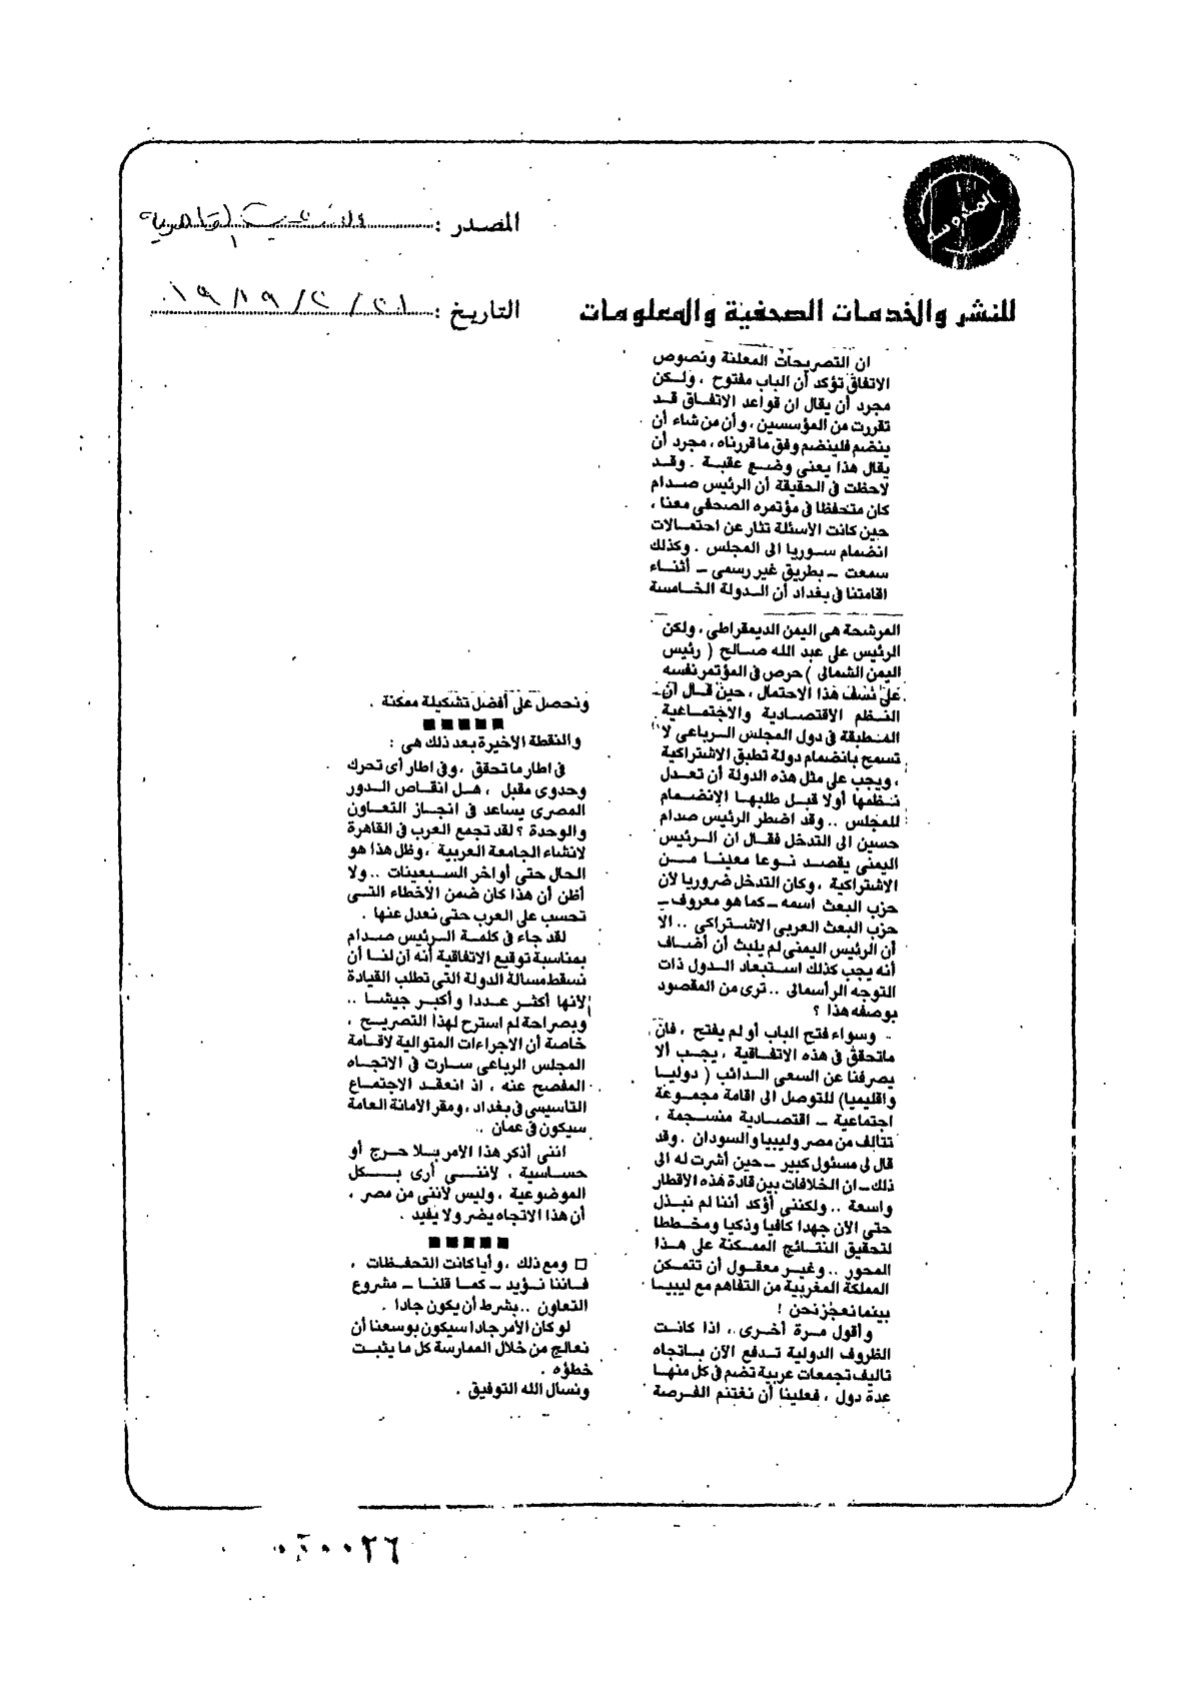 المصدر :
التاريخ :
للنشر والخدمات الصحفية والمعلومات
ان التصريحات المعلنة ونصوص
الاتفاق تؤكد أن الباب مفتوح ، ولكن
مجرد أن يقال ان قواعد الاتفاق قد
تقررت من المؤسسين ، وأن من شاء أن
ينضم فلينضم وفق ما قررناه ، مجرد أن
يقال هذا يعنى وضع عقبة . وقد
لاحظت فى الحقيقة أن الرئيس صدام
كان متحفظا فى مؤتمره الصحفى معنا ،
حين كانت الأسئلة تثار عن احتمالات
انضمام سوريا الى المجلس . وكذلك
سمعت ــ بطريق غير رسمى ــ أثناء
اقامتنا فى بغداد أن الدولة الخامسة
المرشحة هى اليمن الديمقراطى ، ولكن
الرئيس على عبد الله صالح ( رئيس
اليمن الشمالى ) حرص فى المؤتمر نفسه
على نسف هذا الاحتمال ، حين قال أن
النظم الاقتصادية والاجتماعية
المنطبقة فى دول المجلس الرباعى لا
تسمح بانضمام دولة تطبق الاشتراكية
، ويجب على مثل هذه الدولة أن تعدل
نظمها أولا قبل طلبها الإنضمام
للمجلس .. وقد اضطر الرئيس صدام
حسين الى التدخل فقال ان الرئيس
اليمنى يقصد نوعا معينا من
الاشتراكية ، وكان التدخل ضروريا لأن
حزب البعث اسمه ــ كما هو معروف ــ
حزب البعث العربى الاشتراكى .. الا
أن الرئيس اليمنى لم يلبث أن أضاف
أنه يجب كذلك استبعاد الدول ذات
التوجه الرأسمالى .. ترى من المقصود
بوصفه هذا ؟
وسواء فتح الباب أو لم يفتح ، فان
ماتحقق فى هذه الاتفاقية ، يجب ألا
يصرفنا عن السعى الدائب ( دوليا
واقليميا) للتوصل الى اقامة مجموعة
اجتماعية ــ اقتصادية منسجمة ،
تتالف من مصر وليبيا والسودان . وقد
قال لى مسئول كبير ــ حين أشرت له الى
ذلك ــ ان الخلافات بين قادة هذه الأقطار
واسعة .. ولكننى أؤكد أننا لم نبذل
حتى الآن جهدا كافيا وذكيا ومخططا
لتحقيق النتائج الممكنة على هذا
المحور .. وغير معقول أن تتمكن
المملكة المغربية من التفاهم مع ليبيا
بينما نعجز نحن !
وأقول مرة أخرى ، اذا كانت
الظروف الدولية تدفع الآن باتجاه
تاليف تجمعات عربية تضم فى كل منها
عدة دول ، فعلينا أن نغتنم الفرصة
ونحصل على أفضل تشكيلة ممكنة .
■ ■ ■ ■ ■
والنقطة الأخيرة بعد ذلك هى :
فى اطار ما تحقق ، وفى اطار أى تحرك
وحدوى مقبل ، هل انقاص الدور
المصرى يساعد فى انجاز التعاون
والوحدة ؟ لقد تجمع العرب فى القاهرة
لانشاء الجامعة العربية ، وظل هذا هو
الحال حتى أواخر السبعينات .. ولا
أظن أن هذا كان ضمن الأخطاء التى
تحسب على العرب حتى نعدل عنها .
لقد جاء فى كلمة الرئيس صدام
بمناسبة توقيع الاتفاقية أنه آن لنا أن
نسقط مسالة الدولة التى تطلب القيادة
لأنها أكثر عددا وأكبر جيشا ..
وبصراحة لم استرح لهذا التصريح ،
خاصة أن الاجراءات المتوالية لاقامة
المجلس الرباعى سارت فى الاتجاه
المفصح عنه ، اذ انعقد الاجتماع
التأسيسى فى بغداد ، ومقر الأمانة العامة
سيكون فى عمان ..
اننى أذكر هذا الأمر بلا حرج أو
حساسية ، لأننى أرى بكل
الموضوعية ، وليس لأننى من مصر ،
أن هذا الاتجاه يضر ولا يفيد .
■ ■ ■ ■ ■
□ ومع ذلك ، وأيا كانت التحفظات ،
فاننا نؤيد ــ كما قلنا ــ مشروع
التعاون .. بشرط أن يكون جادا .
لو كان الأمر جادا سيكون بوسعنا أن
نعالج من خلال الممارسة كل ما يثبت
خطؤه .
ونسال الله التوفيق .